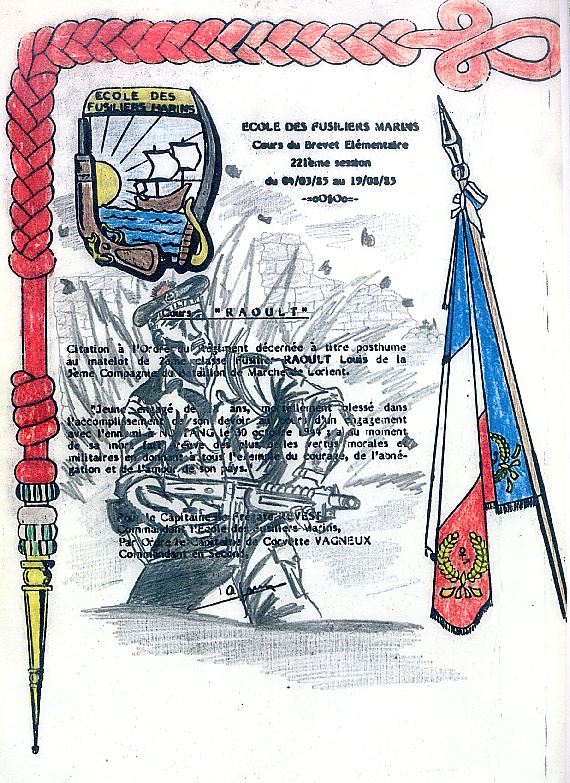 ECOLE DES
FUSILIERS MARINS
ECOLE DES FUSILIERS MARINS
Cours du Brevet Elémentaire
221ème session
du 04/03/85 au 19/08/85
-=oO§Oo=-
Cours "RAOULT"
Citation à l'Ordre du Régiment décernée à titre posthume
au matelot de 2ème classe Fusilier RAOULT Louis de la
3ème Compagnie du Bataillon de Marche de Lorient.
"Jeune engagé de ans, mortellement blessé dans
l'accomplissement de son devoir au cours d'un engagement
avec l'ennemi le 30 octobre 1944, a au moment
de sa mort fait preuve des plus belles vertus morales et
militaires en donnant à tous l'exemple du courage, de l'abné-
gation et de l'amour de son pays."
Pour le Capitaine de Frégate
Commandant l'Ecole des Fusiliers Marins,
Par Ordre le Capitaine de Corvette VAGNEUX
Commandant en Second,